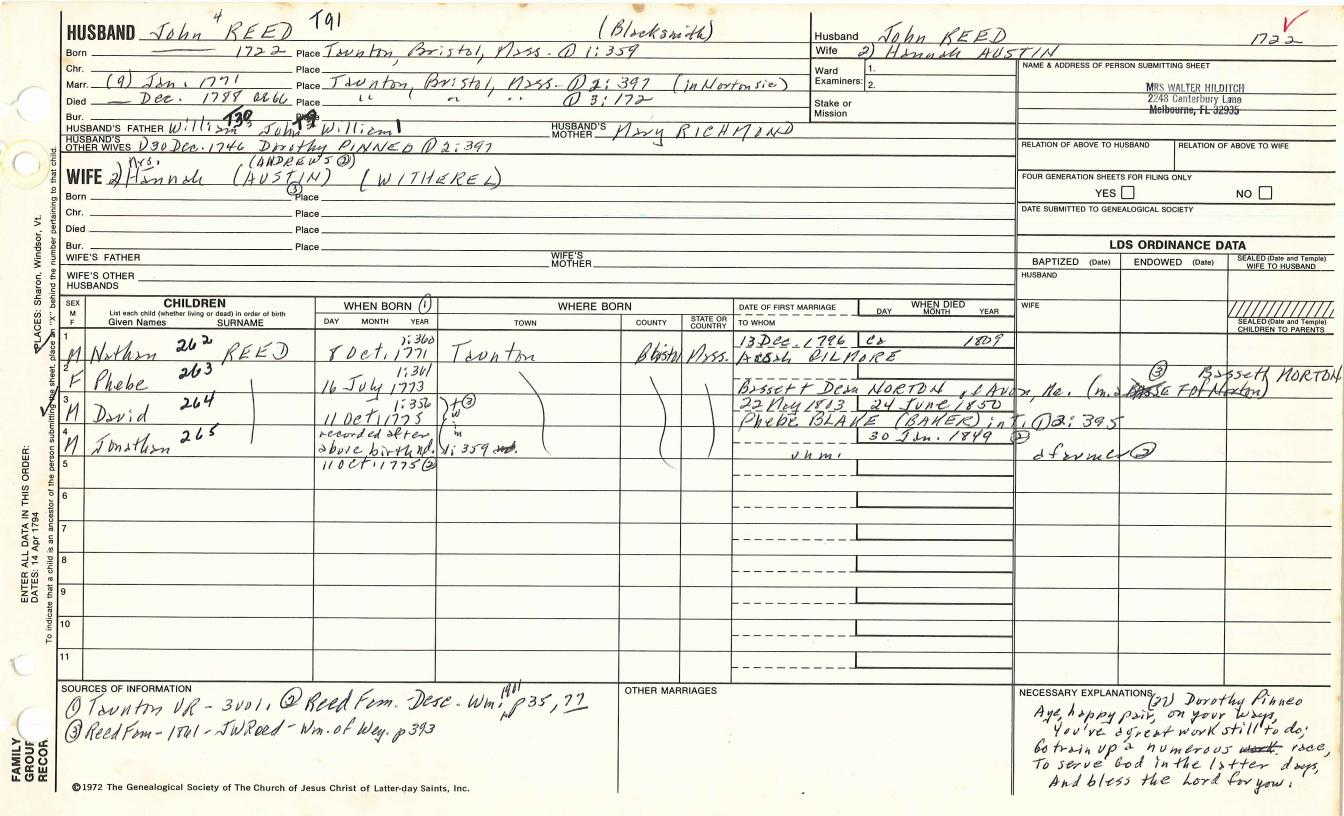 HUSBAND John 4 REED T91 (Blacksmith)
Born 1722 Place Taunton, Bristol, Mass. ① 1:359
Chr. Place
Marr. (9) Jan. 1771 Place Taunton, Bristol, Mass. ① 2:397 (in Nortons ie)
Died — Dec. 1788 ae 66 Place " " " ① 3:172
Bur. Place
HUSBAND'S FATHER William 3 T30 John 2 T9 William 1 HUSBAND'S MOTHER Mary RICHMOND
HUSBAND'S OTHER WIVES 1) 30 Dec. 1746 Dorothy PINNEO ① 2:397
WIFE 2) Mrs. Hannah (AUSTIN) ③ (ANDREWS ②) (WITHEREL)
Born Place
Chr. Place
Died Place
Bur. Place
WIFE'S FATHER WIFE'S MOTHER
WIFE'S OTHER HUSBANDS
Husband John REED 1722
Wife 2) Hannah AUSTIN
Ward Examiners: 1. 2.
Stake or Mission
NAME & ADDRESS OF PERSON SUBMITTING SHEET
MRS WALTER HILDITCH
2243 Canterbury Lane
Melbourne, FL 32935
RELATION OF ABOVE TO HUSBAND RELATION OF ABOVE TO WIFE
FOUR GENERATION SHEETS FOR FILING ONLY
YES NO
DATE SUBMITTED TO GENEALOGICAL SOCIETY
LDS ORDINANCE DATA
BAPTIZED (Date) ENDOWED (Date) SEALED (Date and Temple) WIFE TO HUSBAND
HUSBAND
WIFE
SEALED (Date and Temple) CHILDREN TO PARENTS
SEX M F CHILDREN List each child (whether living or dead) in order of birth Given Names SURNAME WHEN BORN ① DAY MONTH YEAR WHERE BORN TOWN COUNTY STATE OR COUNTRY DATE OF FIRST MARRIAGE TO WHOM WHEN DIED DAY MONTH YEAR
1 M Nathan 262 REED 1:360 8 Oct. 1771 Taunton Bristol Mass. 13 Dec. 1796 ca 1809
GILMORE
2 F Phebe 263 1:361 16 July 1773 Bassett Dean NORTON of Avon, Me. ③ Bassett NORTON
3 M David 264 1:356 11 Oct. 1775 22 May 1803 24 June 1850
Phebe BLAKE (BAKER) int. ① 2:395
4 M Jonathan 265 recorded after above birth 1:359 30 Jan. 1849 ②
11 Oct. 1775 ② unm. a farmer ②
5
6
7
8
9
10
11
SOURCES OF INFORMATION
① Taunton VR - 3 vol. ② Reed Fam. Desc. Wm. 1901 p35, 77
③ Reed Fam - 1861 - JW Reed - Wm. of Wey. p393
OTHER MARRIAGES
NECESSARY EXPLANATIONS Dorothy Pinneo
Aye, happy pair, on your ways,
You've a great work still to do;
Go train up a numerous race,
To serve God in the latter days,
And bless the Lord for you.
©1972 The Genealogical Society of The Church of Jesus Christ of Latter-day Saints, Inc.
FAMILY GROUP RECOR
ENTER ALL DATA IN THIS ORDER:
DATES: 14 Apr 1794
PLACES: Sharon, Windsor, Vt.
To indicate that a child is an ancestor of the person submitting the sheet, place an "X" behind the number pertaining to that child.